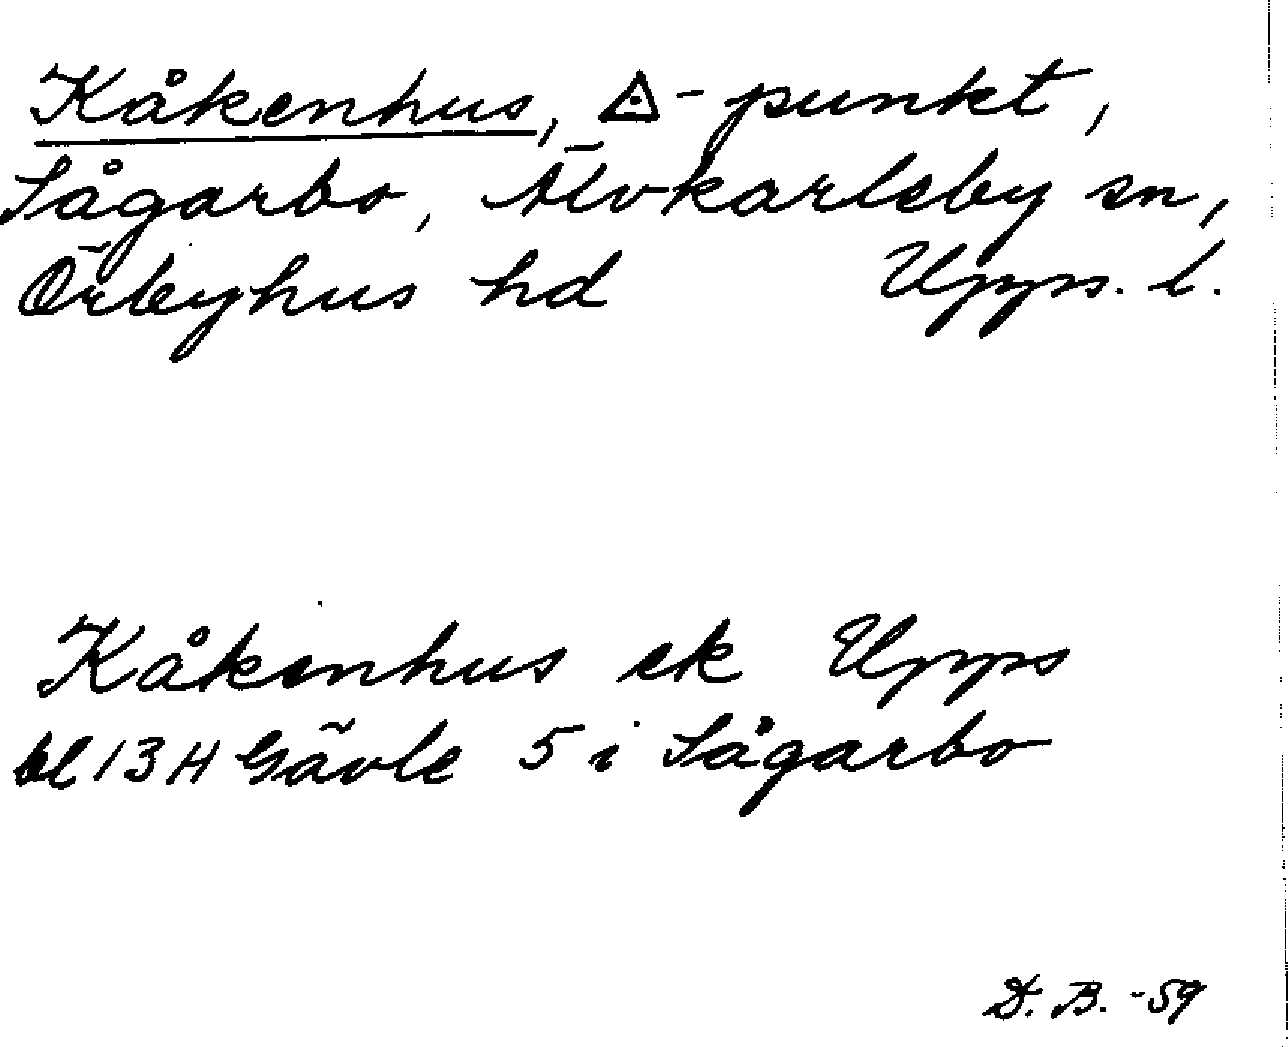 Kåkenhus, ◬-punkt,
Sågarbo, Älvkarleby sn,
Örbyhus hd Upps. l.
Kåkenhus ek Upps
bl 13 H Gävle 5 i Sågarbo
D. B. -59